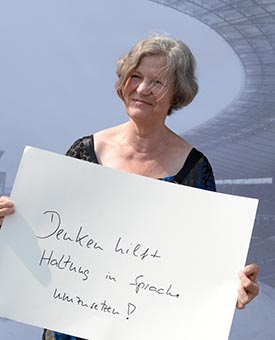 Denken hilft
Haltung in Sprache
umzusetzen!